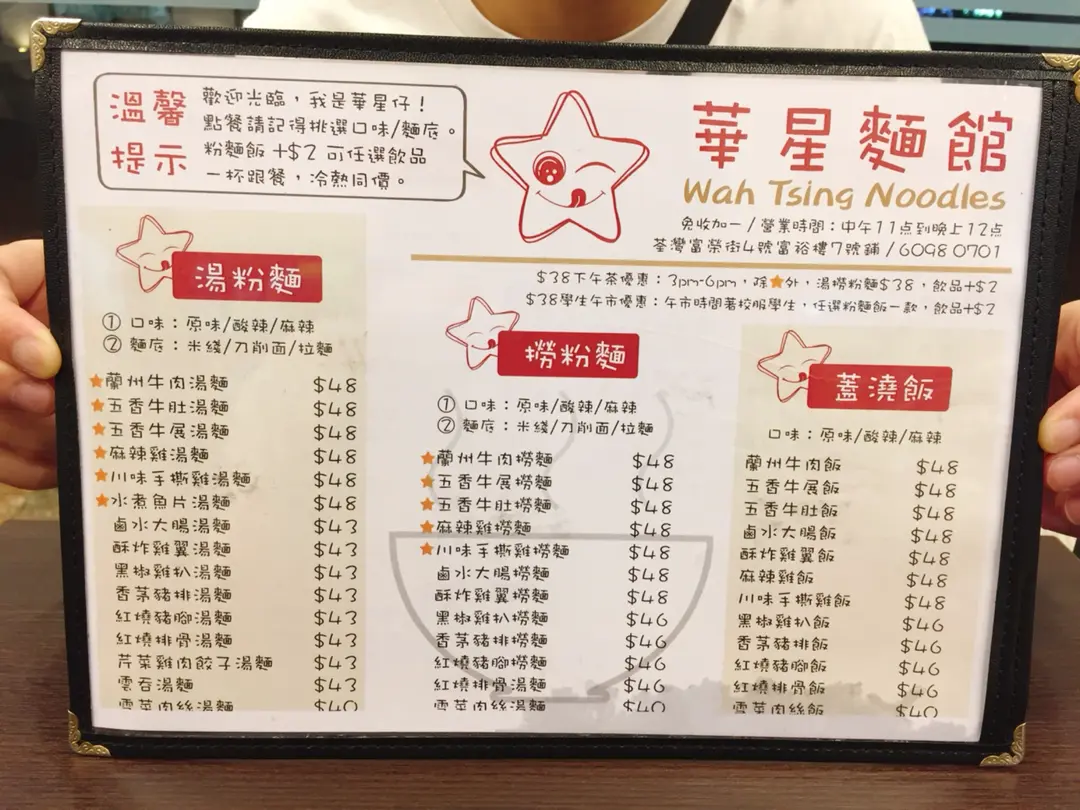 溫馨提示
歡迎光臨，我是華星仔！
點餐請記得挑選口味/麵底。
粉麵飯+$2 可任選飲品
一杯跟餐，冷熱同價。
華星麵館
Wah Tsing Noodles
免收加一/營業時間：中午11点到晚上12点
荃灣富榮街4號富裕樓7號鋪/6098 0701
$38下午茶優惠：3pm-6pm，除★外，湯撈粉麵$38，飲品+$2
$38學生午市優惠：午市時間著校服學生，任選粉麵飯一款，飲品+$2
湯粉麵
① 口味：原味/酸辣/麻辣
② 麵底：米綫/刀削面/拉麵
★蘭州牛肉湯麵 $48
★五香牛肚湯麵 $48
★五香牛展湯麵 $48
★麻辣雞湯麵 $48
★川味手撕雞湯麵 $48
★水煮魚片湯麵 $48
鹵水大腸湯麵 $43
酥炸雞翼湯麵 $43
黑椒雞扒湯麵 $43
香茅豬排湯麵 $43
紅燒豬腳湯麵 $43
紅燒排骨湯麵 $43
芹菜雞肉餃子湯麵 $43
雲吞湯麵 $43
雪菜肉絲湯麵 $40
撈粉麵
① 口味：原味/酸辣/麻辣
② 麵底：米綫/刀削面/拉麵
★蘭州牛肉撈麵 $48
★五香牛展撈麵 $48
★五香牛肚撈麵 $48
★麻辣雞撈麵 $48
★川味手撕雞撈麵 $48
鹵水大腸撈麵 $48
酥炸雞翼撈麵 $48
黑椒雞扒撈麵 $46
香茅豬排撈麵 $46
紅燒豬腳撈麵 $46
紅燒排骨湯麵 $46
雪菜肉絲湯麵 $40
蓋澆飯
口味：原味/酸辣/麻辣
蘭州牛肉飯 $48
五香牛展飯 $48
五香牛肚飯 $48
鹵水大腸飯 $48
酥炸雞翼飯 $48
麻辣雞飯 $48
川味手撕雞飯 $48
黑椒雞扒飯 $46
香茅豬排飯 $46
紅燒豬腳飯 $46
紅燒排骨飯 $46
雪菜肉絲飯 $40